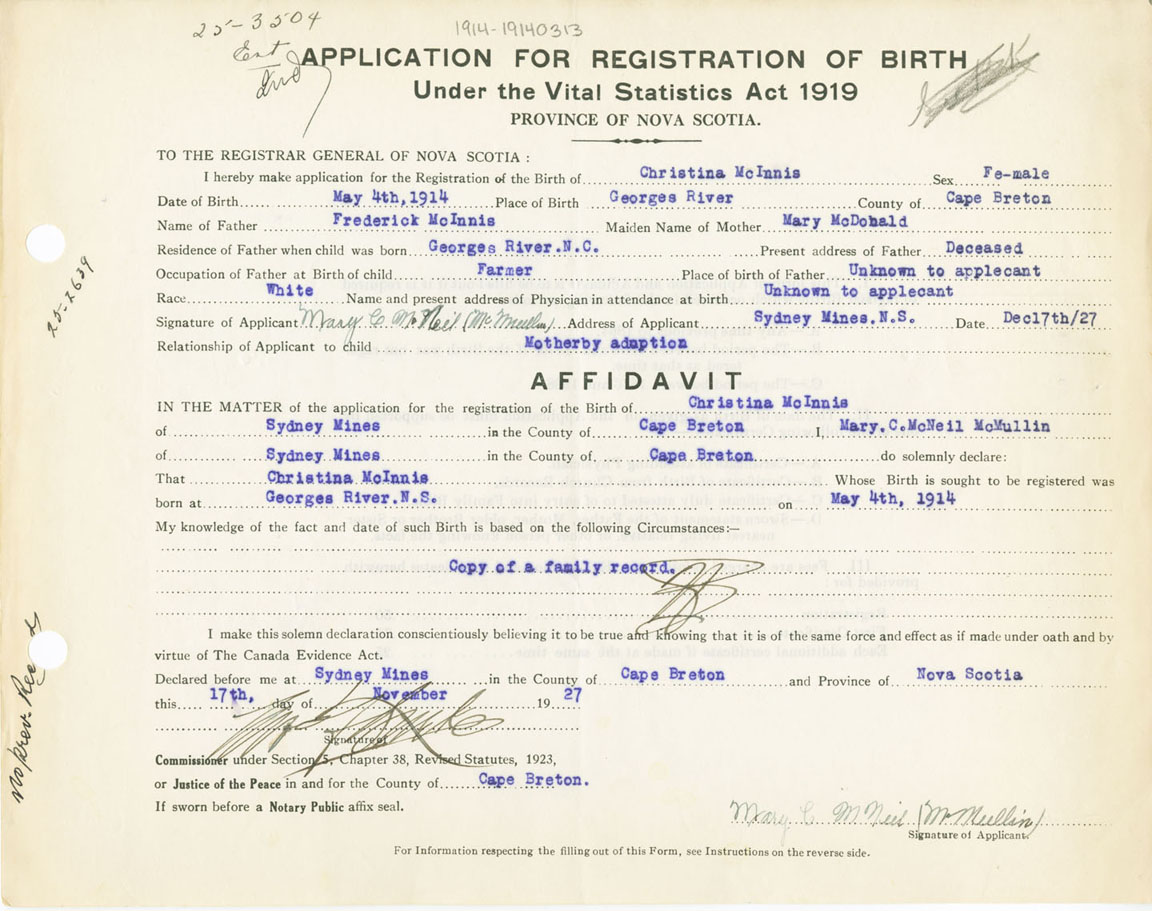 25-3504
1914-19140313
Ent
Ind
APPLICATION FOR REGISTRATION OF BIRTH
Under the Vital Statistics Act 1919
PROVINCE OF NOVA SCOTIA.
TO THE REGISTRAR GENERAL OF NOVA SCOTIA :
I hereby make application for the Registration of the Birth of Christina McInnis Sex Fe-male
Date of Birth May 4th,1914 Place of Birth Georges River County of Cape Breton
Name of Father Frederick McInnis Maiden Name of Mother Mary McDonald
Residence of Father when child was born Georges River.N.C. Present address of Father Deceased
Occupation of Father at Birth of child Farmer Place of birth of Father Unknown to applecant
Race White Name and present address of Physician in attendance at birth Unknown to applecant
Signature of Applicant Mary C McNeil (McMullin) Address of Applicant Sydney Mines.N.S. Date Dec17th/27
Relationship of Applicant to child Motherby adaption
25-2639
AFFIDAVIT
IN THE MATTER of the application for the registration of the Birth of Christina McInnis
of Sydney Mines in the County of Cape Breton I, Mary.C.McNeil McMullin
of Sydney Mines in the County of Cape Breton do solemnly declare:
That Christina McInnis Whose Birth is sought to be registered was
born at Georges River.N.S. on May 4th, 1914
My knowledge of the fact and date of such Birth is based on the following Circumstances:—
Copy of a family record.
I make this solemn declaration conscientiously believing it to be true and knowing that it is of the same force and effect as if made under oath and by
virtue of The Canada Evidence Act.
Declared before me at Sydney Mines in the County of Cape Breton and Province of Nova Scotia
this 17th, day of November 19 27
Signature of
Commissioner under Section 5, Chapter 38, Revised Statutes, 1923,
or Justice of the Peace in and for the County of Cape Breton.
If sworn before a Notary Public affix seal.
No prev. Rec'd
Mary C McNeil (McMullin)
Signature of Applicant.
For Information respecting the filling out of this Form, see Instructions on the reverse side.